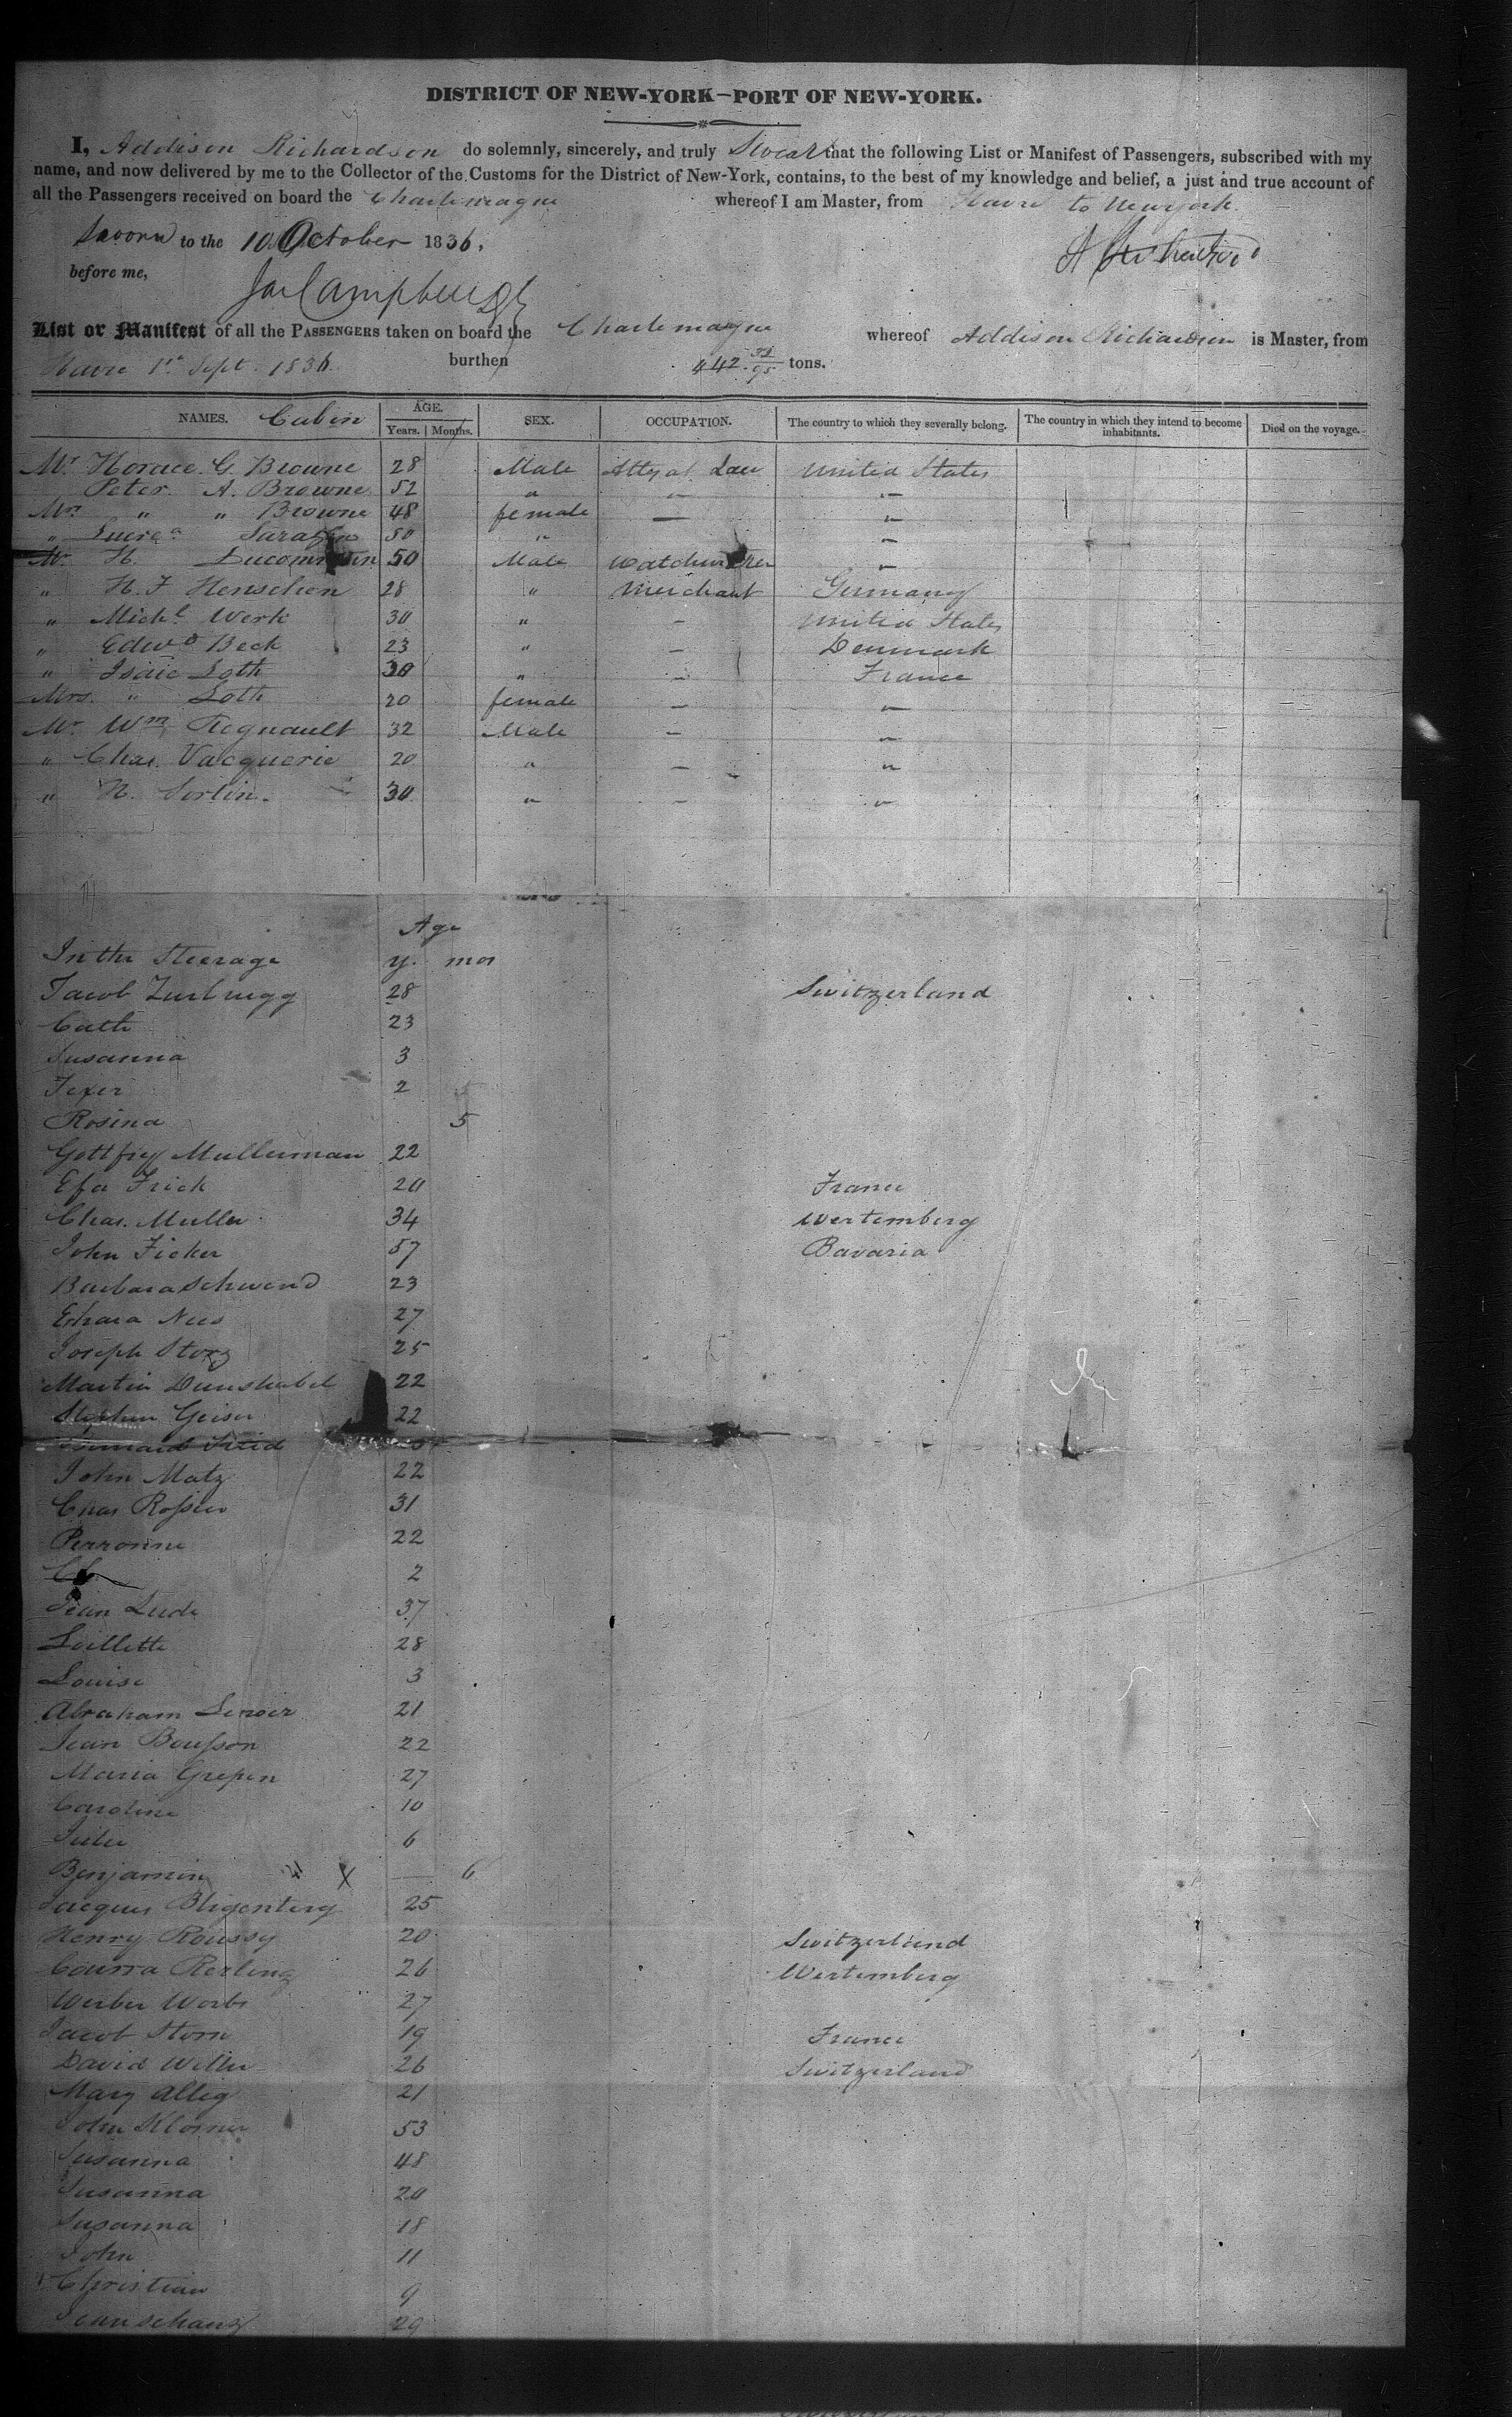 DISTRICT OF NEW-YORK—PORT OF NEW-YORK.
I, Addison Richardson do solemnly, sincerely, and truly Swear that the following List or Manifest of Passengers, subscribed with my
name, and now delivered by me to the Collector of the Customs for the District of New-York, contains, to the best of my knowledge and belief, a just and true account of
all the Passengers received on board the Charlemagne whereof I am Master, from Havre to Newyork.
Sworn to the 10 October 1836.
before me,
List or Manifest of all the PASSENGERS taken on board the Charlemagne whereof Addison Richardson is Master, from
Havre 1st Sept. 1836. burthen 442 32/95 tons.
NAMES. Cabin AGE. Years. Months. SEX. OCCUPATION. The country to which they severally belong. The country in which they intend to become inhabitants. Died on the voyage.
Mr Horace G. Browne 28 Male Atty at Law United States
Peter A. Browne 52 " — "
Mrs " " Browne 48 female — "
" 50 " "
Mr. H. Ducommun 50 Male Watchmaker "
" H. F. Henschen 28 " Merchant Germany
" Michl Werk 30 " — United States
" Edwd Beck 23 " — Denmark
" Isaic Loth 30 " — France
Mrs. " Loth 20 female — "
Mr Wm Regnault 32 Male — "
" Chas. Vacquerie 20 " — "
" N. Sortin. 30 " — "
Age
In the Steerage y. mos
Jacob Zurbrugg 28 Switzerland
Cath 23
Susanna 3
2
Rosina 5
Mulleman 22
Efa Frick 20 France
Chas. Muller 34 Wertemberg
John Ficker 57 Bavaria
Barbara Schwend 23
Nees 27
Joseph Storz 25
Martin Dunshabel 22
Stephen Geiser 22
John Matz 22
Chas Rosser 31
Perronne 22
2
Jean Lude 37
Loillette 28
Louise 3
Abraham Lenoir 21
Jean Bousson 22
Maria 27
Caroline 10
Julie 6
Benjamin X — 6
Jacques 25
Henry Roussy 20 Switzerland
26 Wertemberg
27
Jacob Storn 19 France
David Weller 26 Switzerland
Mary Alleg 21
John 53
Susanna 48
Susanna 20
Susanna 18
John 11
Christian 9
29